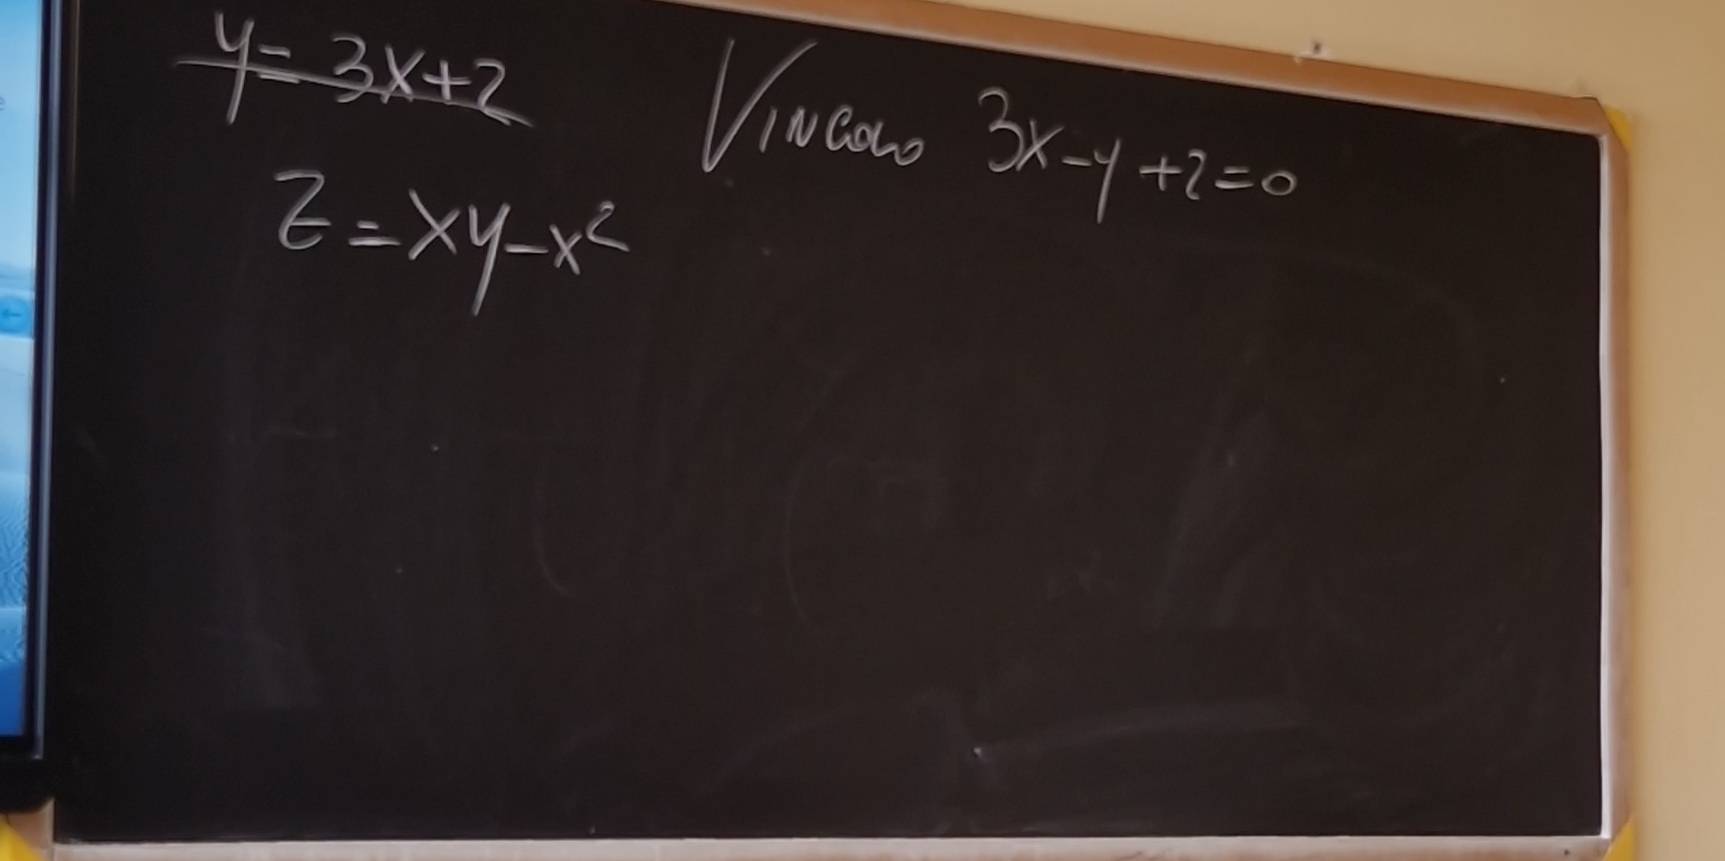 y=3x+2
Vincolo 3x-y+2=0
z=xy-x²